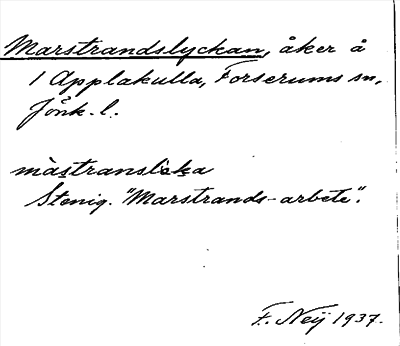 Marstrandslyckan, åker å
1 Applakulla, Forserums sn,
Jönk. l.
màstranslèka
Stenig. "Marstrands-arbete".
F. Neÿ 1937.